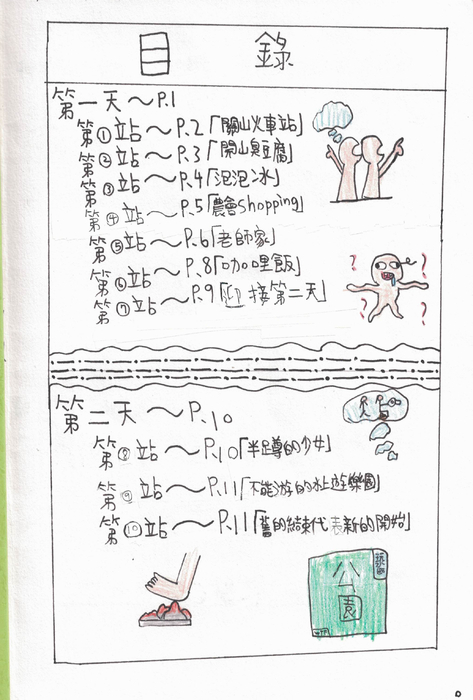 目錄
第一天～P.1
第①站～P.2「關山火車站」
第②站～P.3「關山臭豆腐」
第③站～P.4「泡泡冰」
第④站～P.5「農會shopping」
第⑤站～P.6「老師家」
第⑥站～P.8「咖哩飯」
第⑦站～P.9「迎接第二天」
?
?
?
?
第二天～P.10
第⑧站～P.10「半蹲的少女」
第⑨站～P.11「不能游的水上遊樂園」
第⑩站～P.11「舊的結束代表新的開始」
公
園